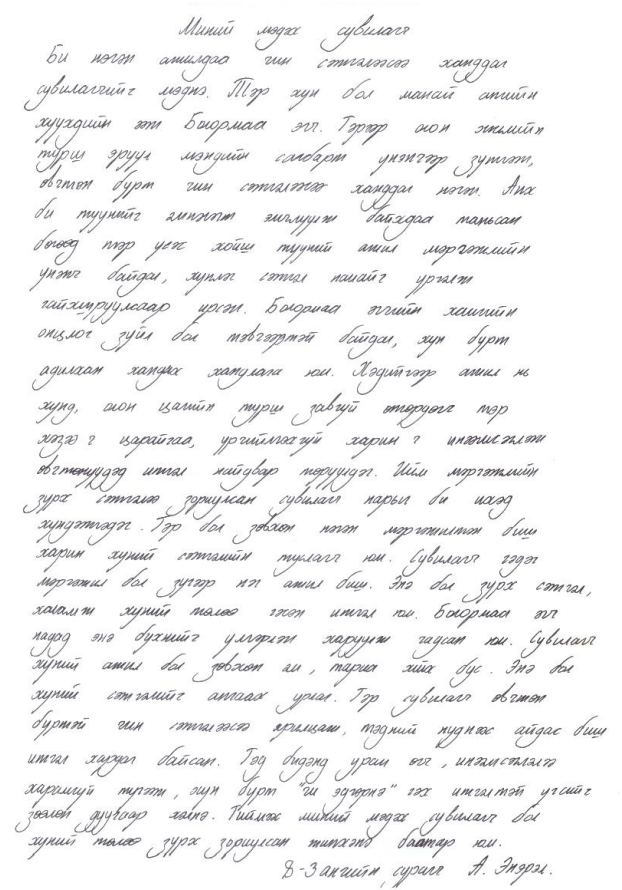 Миний мэдэх сувилагч
Би нэгэн ажилдаа чин сэтгэлээсээ ханддаг
сувилагчийг мэднэ. Тэр хүн бол манай ангийн
хүүхдийн ээж Болормаа эгч. Тэрээр олон жилийн
турш эрүүл мэндийн салбарт үнэнчээр зүтгэж,
өвчтөн бүрт чин сэтгэлээсээ ханддаг нэгэн. Анх
би түүнийг эмнэлэгт эмчлүүлж байхдаа таньсан
бөгөөд тэр үеэс хойш түүний ажил мэргэжлийн
үнэнч байдал, хүнлэг сэтгэл намайг үргэлж
гайхшруулсаар ирсэн. Болормаа эгчийн хамгийн
онцлог зүйл бол тэвчээртэй байдал, хүн бүрт
адилхан хандах хандлага юм. Хэдийгээр ажил нь
хүнд, олон цагийн турш завгүй өнгөрдөг ч тэр
хэзээ ч царайгаа, үргийлгэхгүй харин ч инээмсэглэж
өвчтөнүүдэд итгэл найдвар төрүүлдэг. Ийм мэргэжлийн
зүрх сэтгэлээ зориулсан сувилагч нарыг би ихэд
хүндэтгэдэг. Тэр бол зөвхөн нэгэн мэргэжилтэн биш
харин хүний сэтгэлийн тулагч юм. Сувилагч гэдэг
мэргэжил бол зүгээр нэг ажил биш. Энэ бол зүрх сэтгэл,
халамж хүний төлөө гэсэн итгэл юм. Болормаа эгч
надад энэ бүхнийг үлгэрлэн харуулж чадсан юм. Сувилагч
хүний ажил бол зөвхөн эм, тариа хийх бус. Энэ бол
хүний сэтгэлийг анагаах урлаг. Тэр сувилагч өвчтөн
бүртэй чин сэтгэлээсээ ярилцаж, тэдний нүднээс айдас биш
итгэл хардаг байсан. Тэд бидэнд урам өгч, инээмсэглэлээ
харамгүй түгээж, өдөр бүрт "чи эдгэрнэ" гэх итгэлтэй үгсийг
зөөлөн дуугаар хэлнэ. Тиймээс миний мэдэх сувилагч бол
хүний төлөө зүрх зориулсан жинхэнэ баатар юм.
8-3 ангийн сурагч А. Энэрэл.